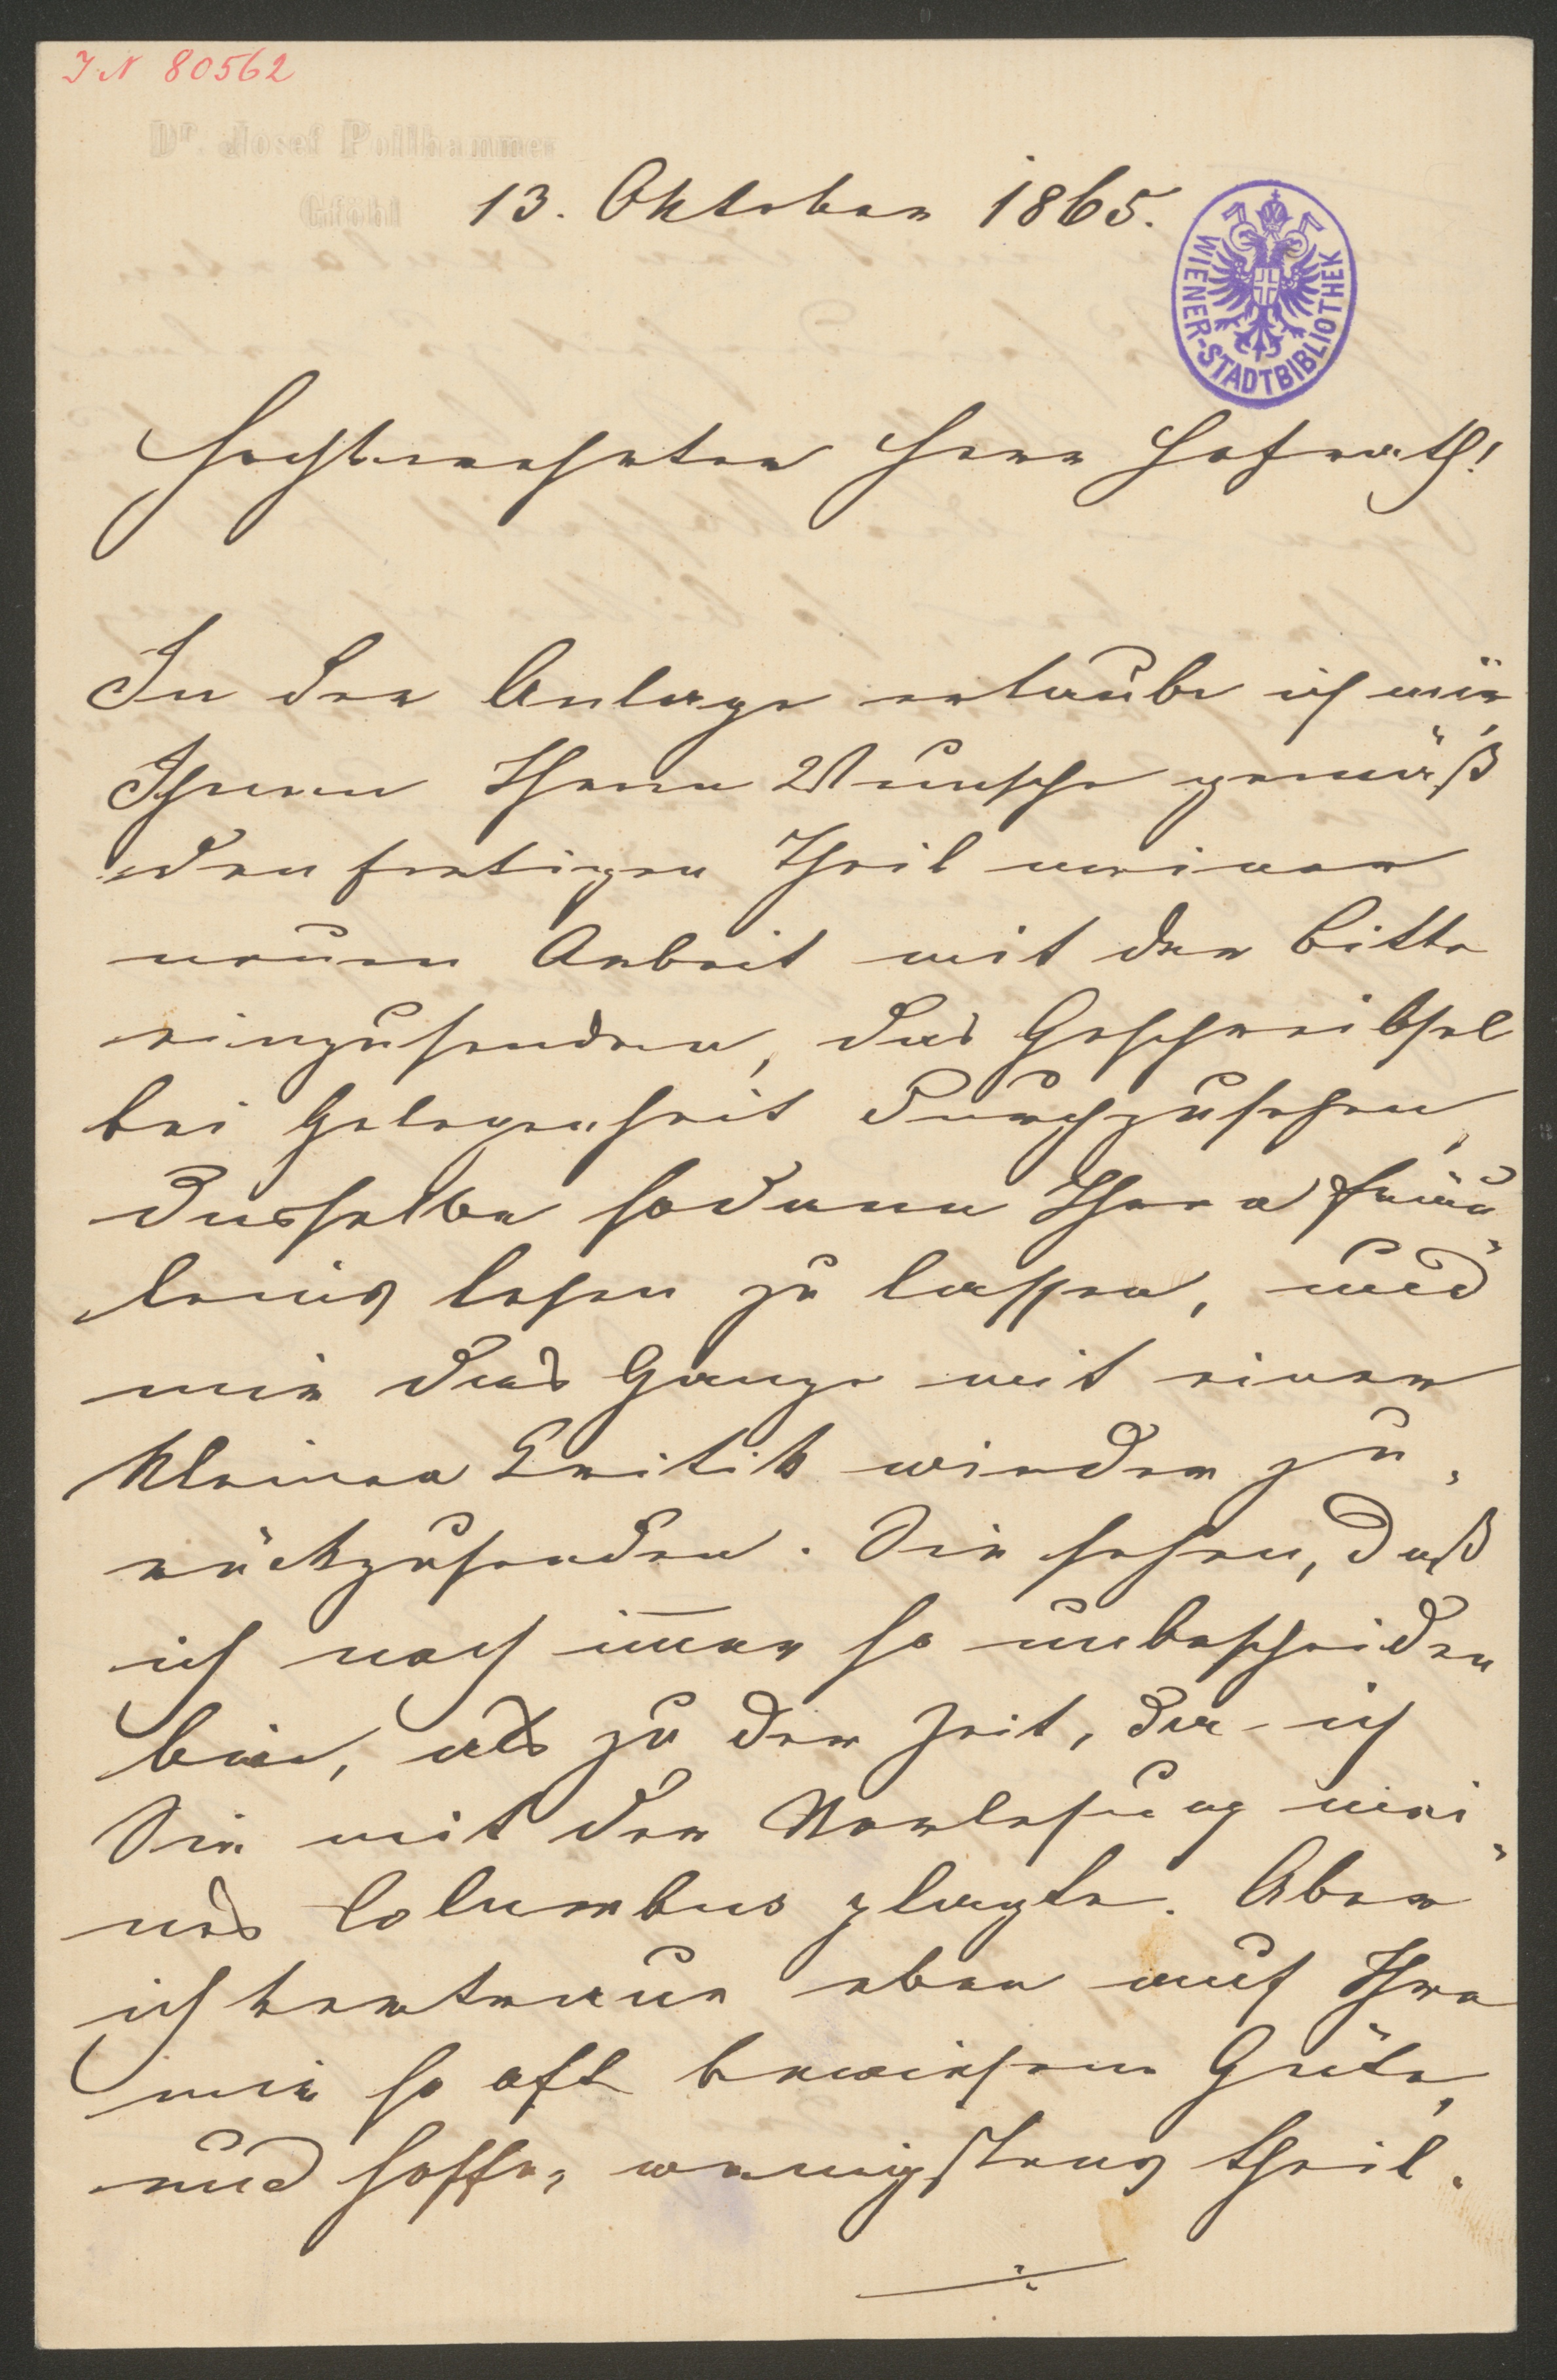 I N 80562
Dr. Josef Pollhammer
Gföhl
13. Oktober 1865.
WIENER-STADTBIBLIOTHEK
Hochverehrter Herr Hofrath!
In der Anlage erlaube ich mir,
Ihnen Ihrem Wunsche gemäß
den fertigen Theil meiner
neuen Arbeit mit der Bitte
einzusenden, das Geschreibsel
bei Gelegenheit durchzusehen,
dasselbe sodann Ihre Fräu-
leins lesen zu lassen, und
mir das Ganze mit einer
kleinen Critik wieder zu-
rückzusenden. Sie sehen, daß
ich noch im̅er so unbescheiden
bin, als zu der Zeit, da ich
Sie mit der Vorlesung mei-
nes Columbus plagte. Aber
ich vertraue eben auf Ihre
mir so oft bewiesene Güte,
und hoffe, wenigstens theil-
./.